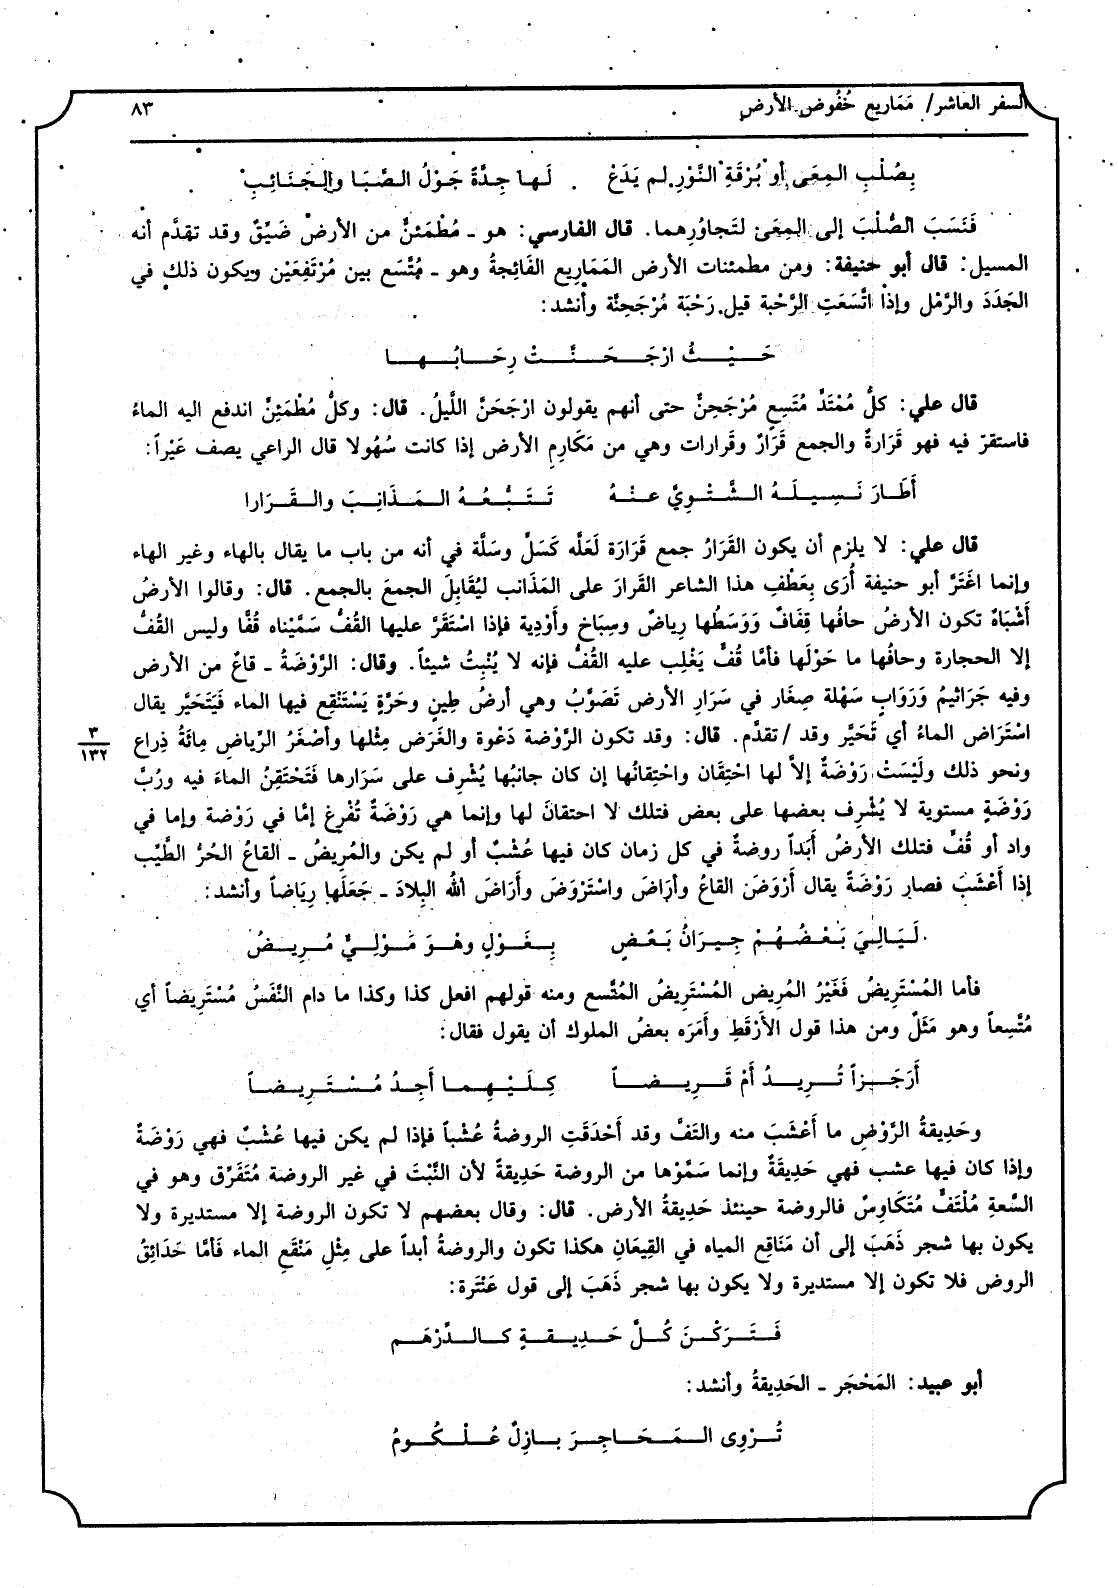 السفر العاشر/ مَمَاريع خُفُوض الأرض ٨٣
بِصُلْبِ المِعَى أو بُرْقَةِ النَّوْرِ لم يَدَعْ لَها جِدَّةً جَوْلُ الصَّبَا والجَنَائِبِ
فَنَسَبَ الصُّلْبَ إلى المِعَى لتَجاوُرِهما. قال الفارسي: هو ـ مُطْمَئنٌّ من الأرضْ ضَيِّقٌ وقد تقدَّم أنه
المسيل: قال أبو حنيفة: ومن مطمئنات الأرض المَمَارِيع الفَائِجةُ وهو ـ مُتَّسَع بين مُرْتَفِعَيْن ويكون ذلك في
الجَدَدَ والرَّمْل وإذا اتَّسَعَتِ الرَّحْبة قيل رَحْبَة مُرْجَحِنَّة وأنشد:
حَـيْـثُ ارْجَـحَـنَّـتْ رِحَـابُـهـا
قال علي: كلُّ مُمْتَدٍّ مُتَسِع مُرْجَحِنٌّ حتى أنهم يقولون ارْجَحَنَّ اللَّيلُ. قال: وكلُّ مُطْمَئِنٍّ اندفع اليه الماءُ
فاستقرّ فيه فهو قَرَارةٌ والجمع قَرَارٌ وقَرارات وهي من مَكَارِمِ الأرض إذا كانت سُهُولا قال الراعي يصف عَيْراً:
أَطَارَ نَـسِـيـلَـهُ الـشَّـتْـوِيَّ عـنْـهُ تَـتَـبُّـعُـهُ الـمَـذَانِـبَ والـقَـرَارا
قال علي: لا يلزم أن يكون القَرَارُ جمع قَرَارَة لَعَلَّه كَسَلٍّ وسَلَّة في أنه من باب ما يقال بالهاء وغير الهاء
وإنما اغْتَرَّ أبو حنيفة أُرَى بِعَطْفِ هذا الشاعر القَرارَ على المَذَانب ليُقَابِلَ الجمعَ بالجمع. قال: وقالوا الأرضُ
أَشْبَاهٌ تكون الأرضُ حافُها قِفَافٌ وَوَسَطُها رِياضٌ وسِبَاخ وأَوْدِية فإذا اسْتَقَرَّ عليها القُفُّ سَمَّيْناه قُفًّا وليس القُفُّ
إلا الحجارة وحافُها ما حَوْلَها فأمَّا قُفٌّ يَغْلِب عليه القُفُّ فإنه لا يُنْبِتُ شيئاً. وقال: الرَّوْضَةُ ـ قاعٌ من الأرض
وفيه جَرَاثيمُ وَرَوَابٍ سَهْلة صِغَار في سَرَارِ الأرض تَصَوَّبُ وهي أرضُ طِينٍ وحَرَّةٍ يَسْتَنْقِع فيها الماء فَيَتَحَيَّر يقال
اسْتَرَاضَ الماءُ أي تَحَيَّر وقد /تقدَّم. قال: وقد تكون الرَّوْضة دَعْوة والعَرَض مِثْلها وأصْغَرُ الرِّياضِ مِائَةُ ذِراع
٣
١٣٢
ونحو ذلك ولَيْسَتْ رَوْضَةٌ إلاَّ لها احْتِقَان واحْتِقانُها إن كان جانبُها يُشْرِف على سَرَارها فَتَحْتَقِنُ الماءَ فيه ورُبَّ
رَوْضَةٍ مستوية لا يُشْرِف بعضها على بعض فتلك لا احتقانَ لها وإنما هي رَوْضَةٌ تُفْرِغ إمَّا في رَوْضة وإما في
واد أو قُفٍّ فتلك الأرضُ أَبَداً روضةٌ في كل زمان كان فيها عُشْبٌ أو لم يكن والمُرِيضُ ـ القاعُ الحُرُّ الطَّيِّب
إذا أَعْشَبَ فصار رَوْضَةً يقال أَرْوَضَ القاعُ وأراضَ واسْتَرْوَضَ وأَرَاضَ اللَّهُ البِلادَ ـ جَعَلَها رِيَاضاً وأنشد:
لَـيَـالِـيَ بَـعْـضُـهُـمْ جِـيـرَانُ بَـعْـضٍ بِـغَـوْلٍ وهْـوَ مَـوْلِـيٌّ مُـرِيـضُ
فأما المُسْتَرِيضُ فَغَيْرُ المُرِيضِ المُسْتَرِيضُ المُتَّسع ومنه قولهم افعل كذا وكذا ما دام النَّفَسُ مُسْتَرِيضاً أي
مُتَّسِعاً وهو مَثَلٌ ومن هذا قول الأَرْقَطِ وأَمَرَه بعضُ الملوك أن يقول فقال:
أَرَجَـزاً تُـرِيـدُ أَمْ قَـرِيـضـاً كِـلَـيْـهِـمـا أَجِـدُ مُـسْـتَـرِيـضـاً
وحَدِيقةُ الرَّوْضِ ما أَعْشَبَ منه والتَفَّ وقد أَحْدَقَتِ الروضةُ عُشْباً فإذا لم يكن فيها عُشْبٌ فهي رَوْضَةٌ
وإذا كان فيها عشب فهي حَدِيقَةٌ وإنما سَمَّوْها من الروضة حَدِيقةً لأن النَّبْتَ في غير الروضة مُتَفَرِّق وهو في
السَّعةِ مُلْتَفٌّ مُتَكَاوِسٌ فالروضة حينئذ حَدِيقةُ الأرض. قال: وقال بعضهم لا تكون الروضة إلا مستديرة ولا
يكون بها شجر ذَهَبَ إلى أن مَنَاقِع المياه في القِيعَانِ هكذا تكون والروضةُ أبداً على مِثْلِ مَنْقَعِ الماء فَأمَّا حَدَائِقُ
الروض فلا تكون إلا مستديرة ولا يكون بها شجر ذَهَبَ إلى قول عَنْتَرة:
فَـتَـرَكْـنَ كُـلَّ حَـدِيـقـةٍ كـالـدِّرْهَـم
أبو عبيد: المَحْجَر ـ الحَدِيقةُ وأنشد:
تُـرْوِى الـمَـحَـاجِـرَ بـازِلٌ عُـلْـكُـومُ